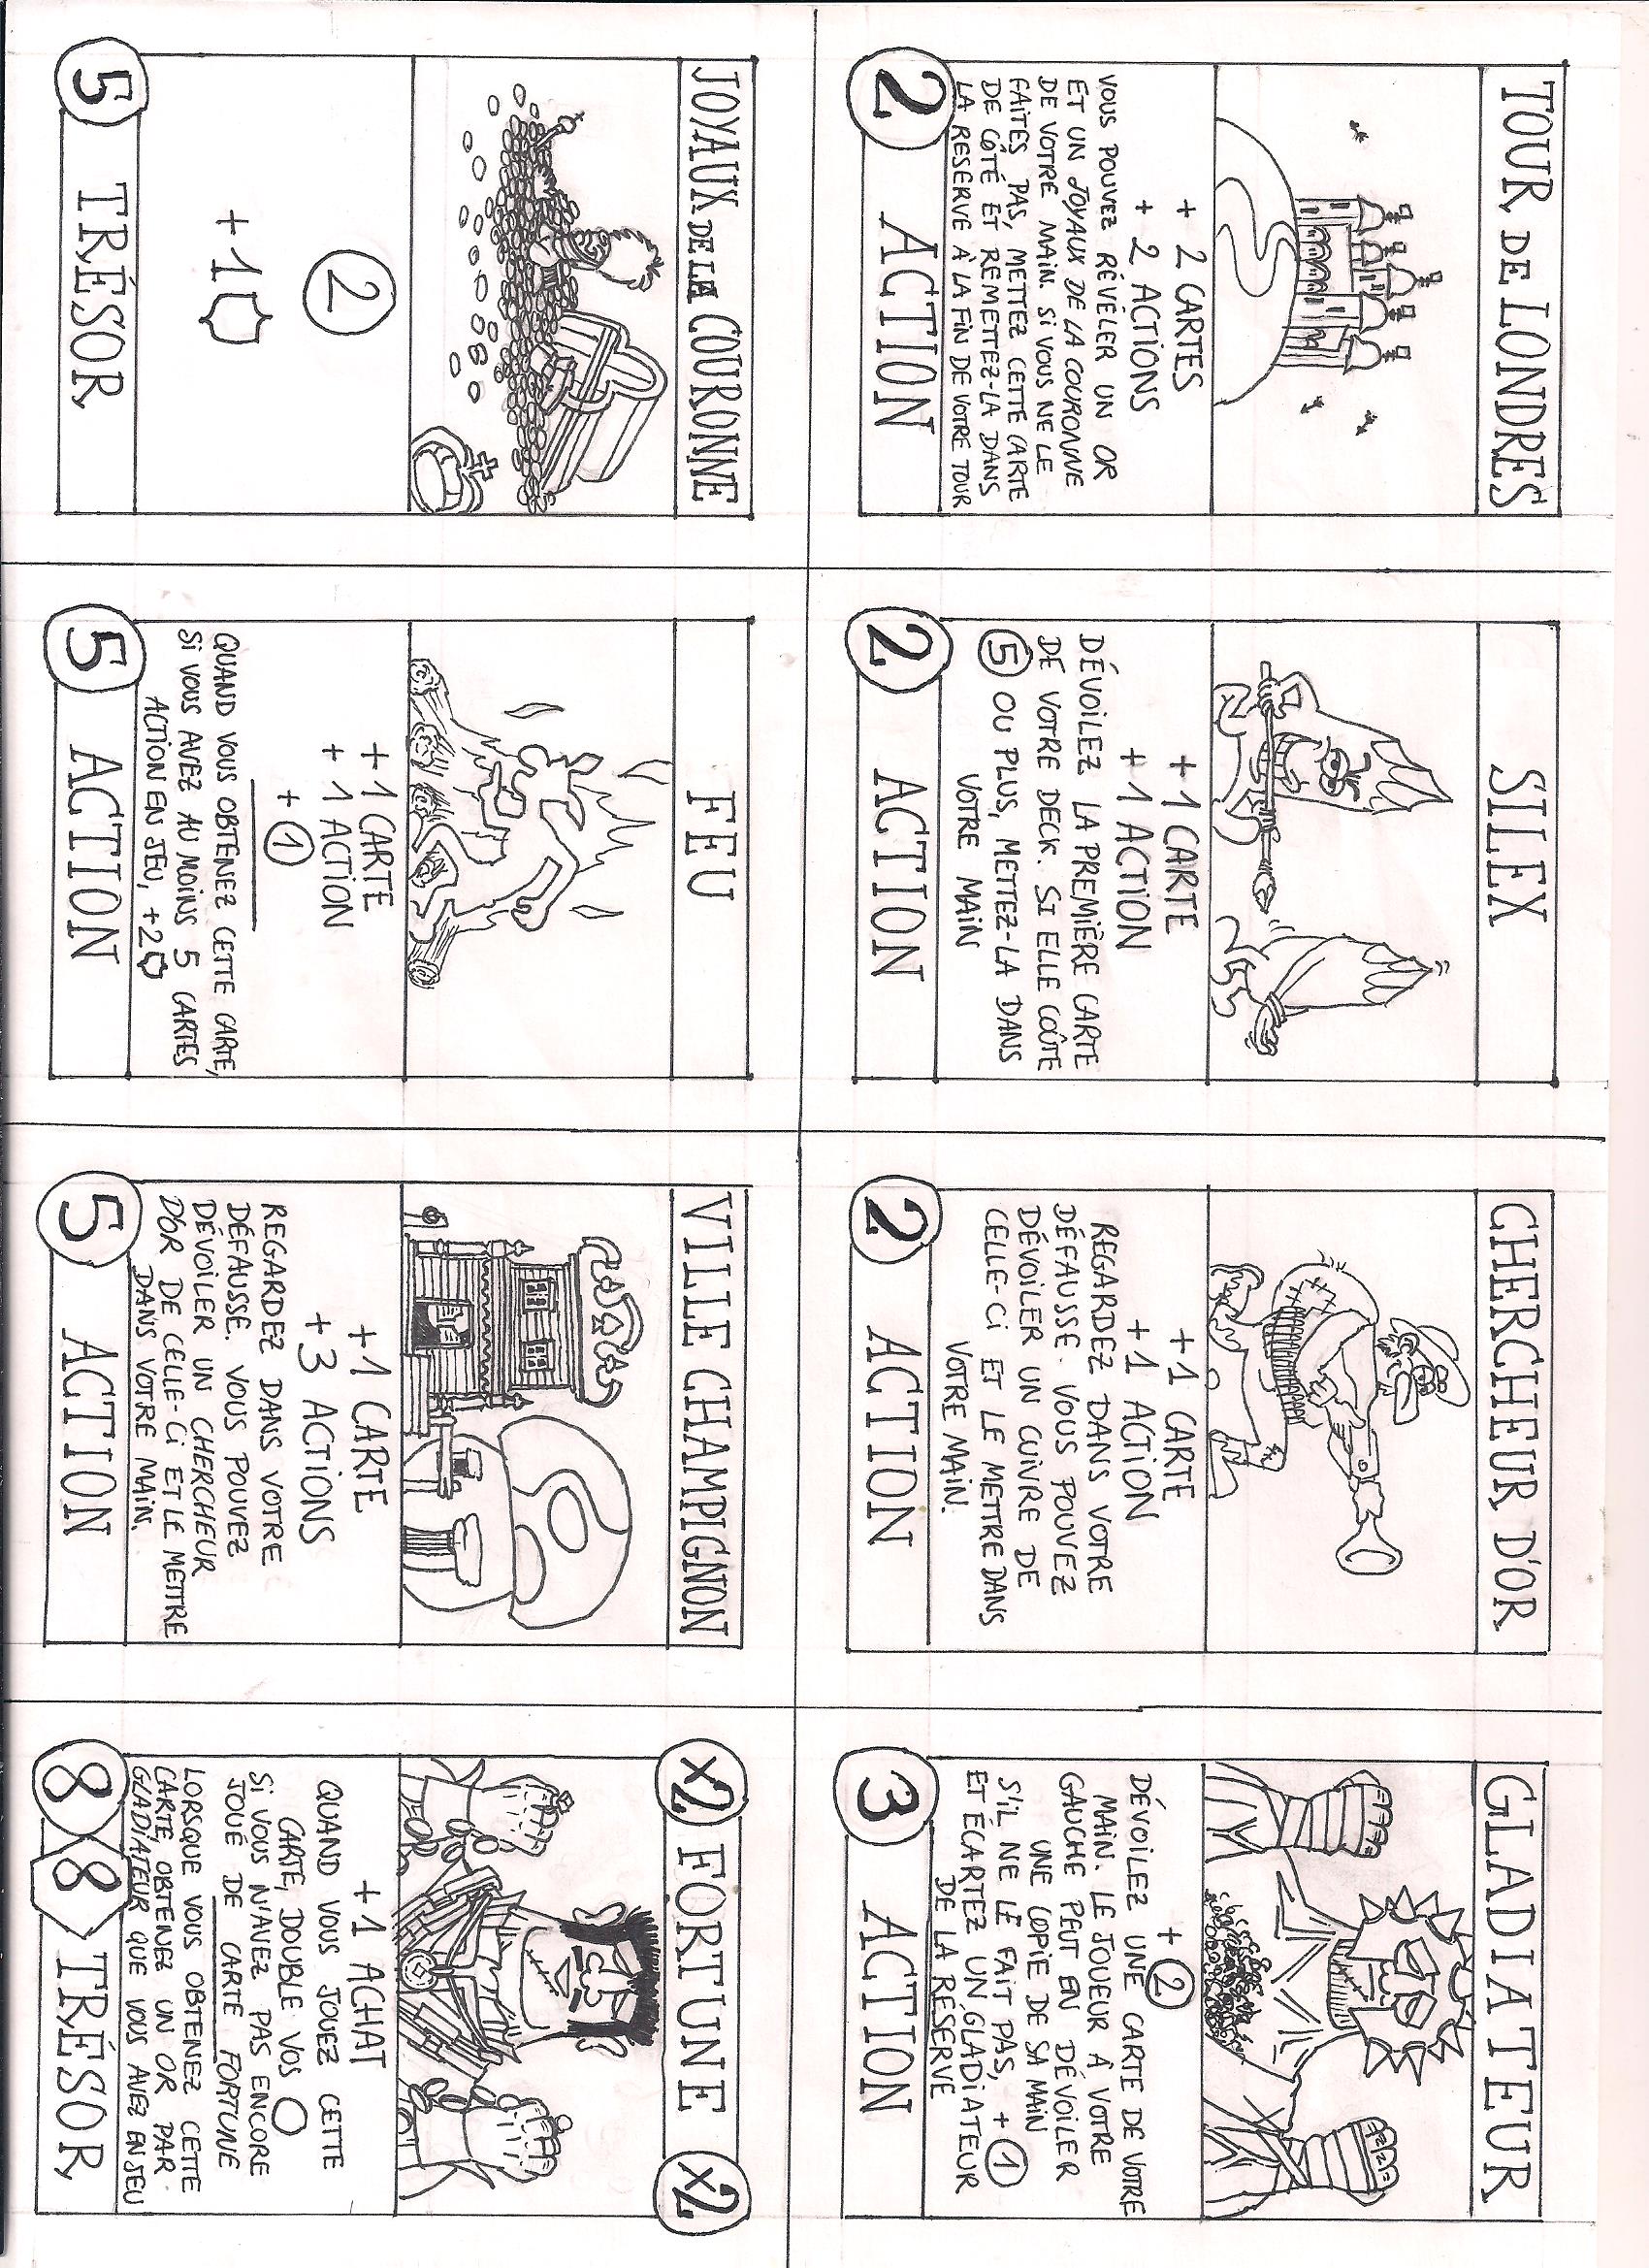 TOUR DE LONDRES
+ 2 CARTES
+ 2 ACTIONS
VOUS POUVEZ RÉVÉLER UN OR
ET UN JOYAUX DE LA COURONNE
DE VOTRE MAIN. SI VOUS NE LE
FAITES PAS, METTEZ CETTE CARTE
DE CÔTÉ ET REMETTEZ-LA DANS
LA RESERVE À LA FIN DE VOTRE TOUR
2 ACTION
SILEX
+ 1 CARTE
+ 1 ACTION
DÉVOILEZ LA PREMIÈRE CARTE
DE VOTRE DECK. SI ELLE COÛTE
5 OU PLUS, METTEZ-LA DANS
VOTRE MAIN
2 ACTION
CHERCHEUR D'OR
+ 1 CARTE
+ 1 ACTION
REGARDEZ DANS VOTRE
DÉFAUSSE. VOUS POUVEZ
DÉVOILER UN CUIVRE DE
CELLE-CI ET LE METTRE DANS
VOTRE MAIN.
2 ACTION
GLADIATEUR
+ 2
DÉVOILEZ UNE CARTE DE VOTRE
MAIN. LE JOUEUR À VOTRE
GAUCHE PEUT EN DÉVOILER
UNE COPIE DE SA MAIN
S'IL NE LE FAIT PAS, + 1
ET ÉCARTEZ UN GLADIATEUR
DE LA RESERVE
3 ACTION
JOYAUX DE LA COURONNE
2
+ 1
5 TRÉSOR
FEU
+ 1 CARTE
+ 1 ACTION
+ 1
QUAND VOUS OBTENEZ CETTE CARTE,
SI VOUS AVEZ AU MOINS 5 CARTES
ACTION EN JEU, +2
5 ACTION
VILLE CHAMPIGNON
+ 1 CARTE
+ 3 ACTIONS
REGARDEZ DANS VOTRE
DÉFAUSSE. VOUS POUVEZ
DÉVOILER UN CHERCHEUR
D'OR DE CELLE-CI ET LE METTRE
DANS VOTRE MAIN.
5 ACTION
x2 FORTUNE x2
+ 1 ACHAT
QUAND VOUS JOUEZ CETTE
CARTE, DOUBLE VOS
SI VOUS N'AVEZ PAS ENCORE
JOUÉ DE CARTE FORTUNE
LORSQUE VOUS OBTENEZ CETTE
CARTE, OBTENEZ UN OR PAR
GLADIATEUR QUE VOUS AVEZ EN JEU
8 8 TRÉSOR